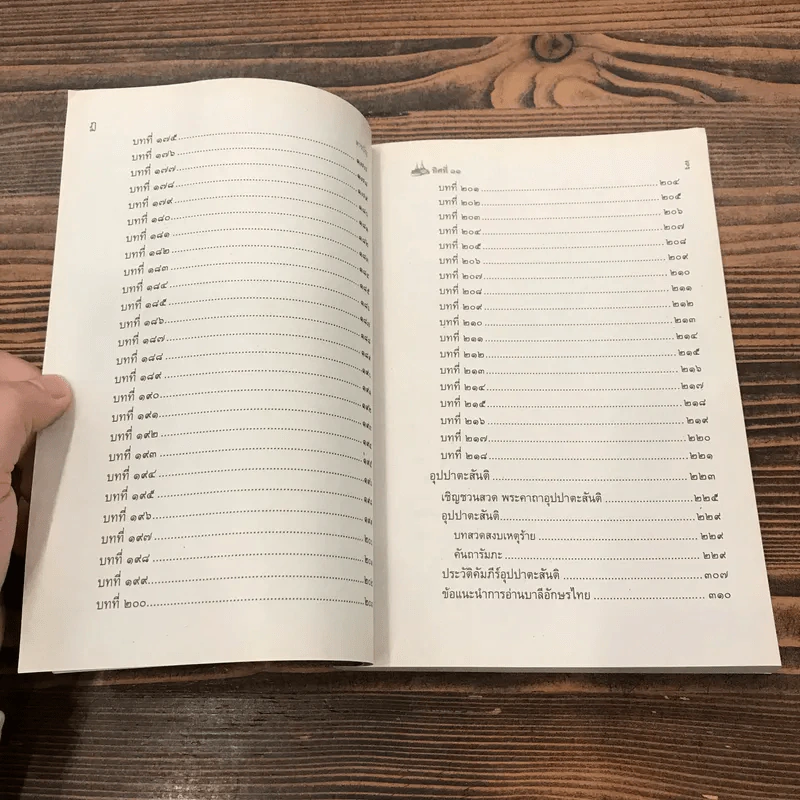 ฏ
บทที่ ๑๗๕
บทที่ ๑๗๖
บทที่ ๑๗๗
บทที่ ๑๗๘
บทที่ ๑๗๙
บทที่ ๑๘๐
บทที่ ๑๘๑
บทที่ ๑๘๒
บทที่ ๑๘๓
บทที่ ๑๘๔
บทที่ ๑๘๕
บทที่ ๑๘๖
บทที่ ๑๘๗
บทที่ ๑๘๘
บทที่ ๑๘๙
บทที่ ๑๙๐
บทที่ ๑๙๑
บทที่ ๑๙๒
บทที่ ๑๙๓
บทที่ ๑๙๔
บทที่ ๑๙๕
บทที่ ๑๙๖
บทที่ ๑๙๗
บทที่ ๑๙๘
บทที่ ๑๙๙
บทที่ ๒๐๐
ทิศที่ ๑๑
บทที่ ๒๐๑ ๒๐๔
บทที่ ๒๐๒ ๒๐๕
บทที่ ๒๐๓ ๒๐๖
บทที่ ๒๐๔ ๒๐๗
บทที่ ๒๐๕ ๒๐๘
บทที่ ๒๐๖ ๒๐๙
บทที่ ๒๐๗ ๒๑๐
บทที่ ๒๐๘ ๒๑๑
บทที่ ๒๐๙ ๒๑๒
บทที่ ๒๑๐ ๒๑๓
บทที่ ๒๑๑ ๒๑๔
บทที่ ๒๑๒ ๒๑๕
บทที่ ๒๑๓ ๒๑๖
บทที่ ๒๑๔ ๒๑๗
บทที่ ๒๑๕ ๒๑๘
บทที่ ๒๑๖ ๒๑๙
บทที่ ๒๑๗ ๒๒๐
บทที่ ๒๑๘ ๒๒๑
อุปปาตะสันติ ๒๒๓
เชิญชวนสวด พระคาถาอุปปาตะสันติ ๒๒๕
อุปปาตะสันติ ๒๒๙
บทสวดสงบเหตุร้าย ๒๒๙
คันถารัมภะ ๒๒๙
ประวัติคัมภีร์อุปปาตะสันติ ๓๐๗
ข้อแนะนำการอ่านบาลีอักษรไทย ๓๑๐